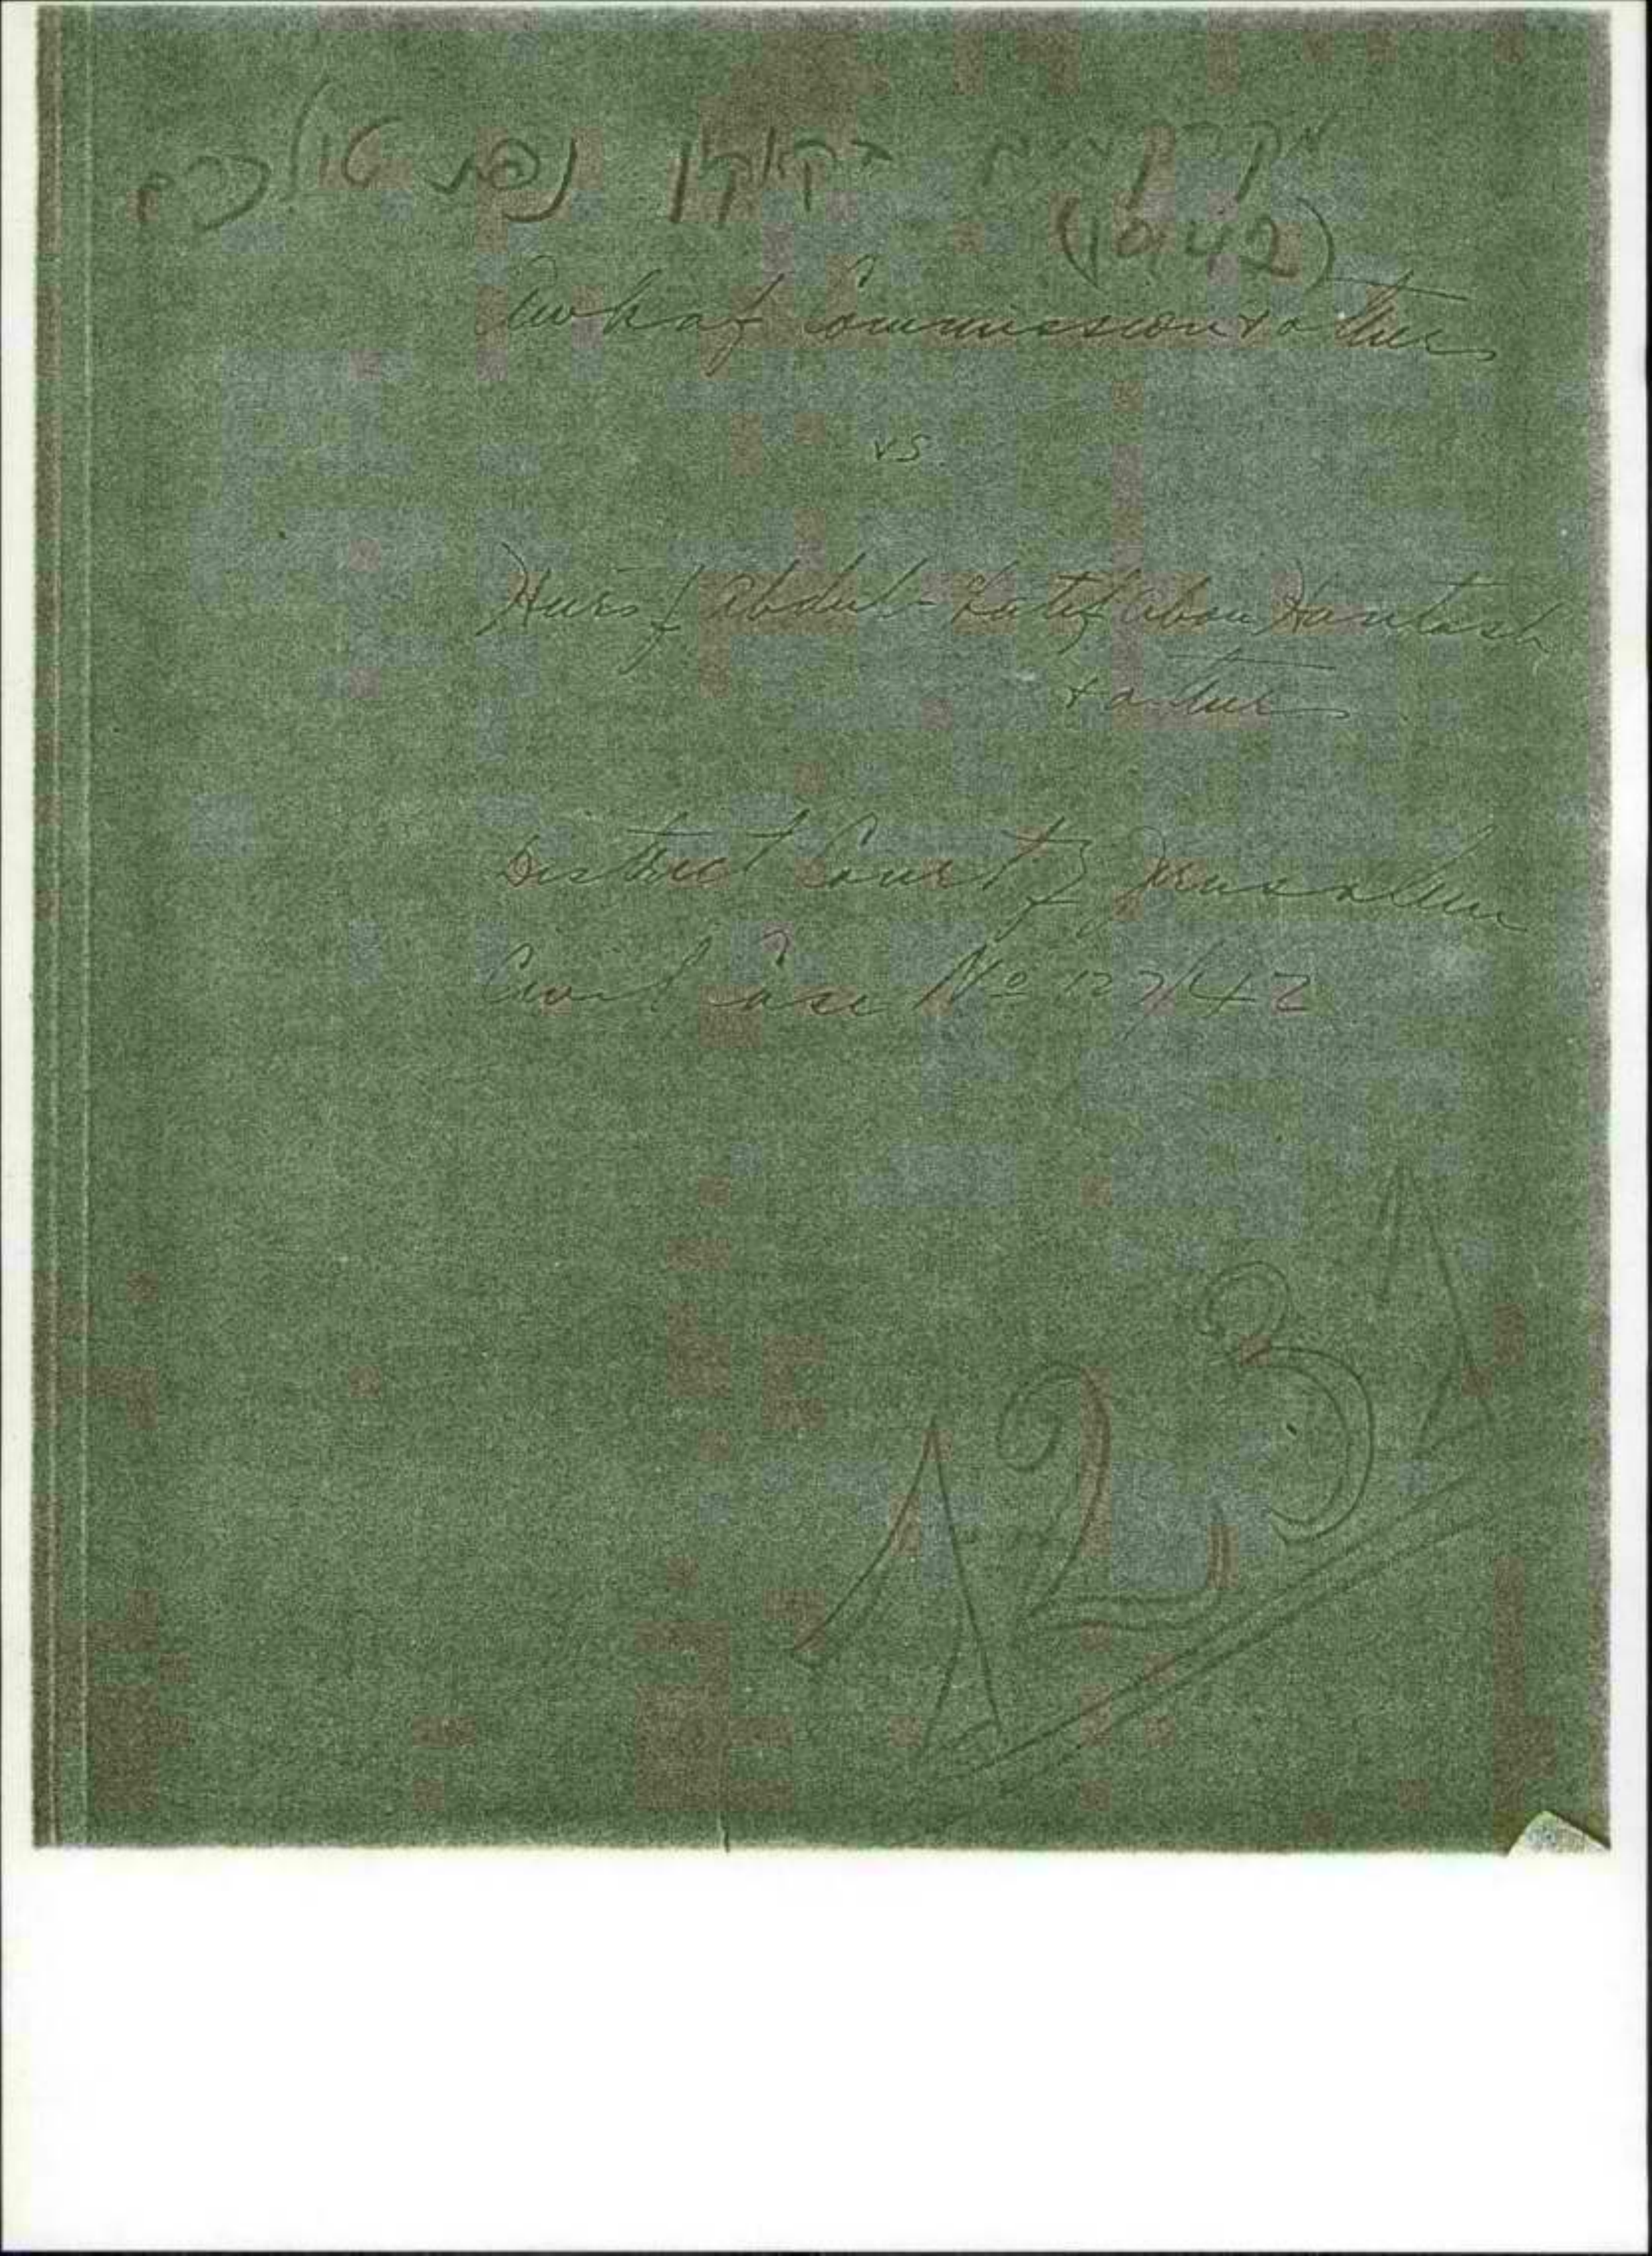 מקרקעים בקאקון נפת טולכרם
(1942)
Awkaf Commission & others
vs.
Heirs of Abdul-Latif Abou Hantash
& others
District Court of Jerusalem
Civil Case No 127/42
123